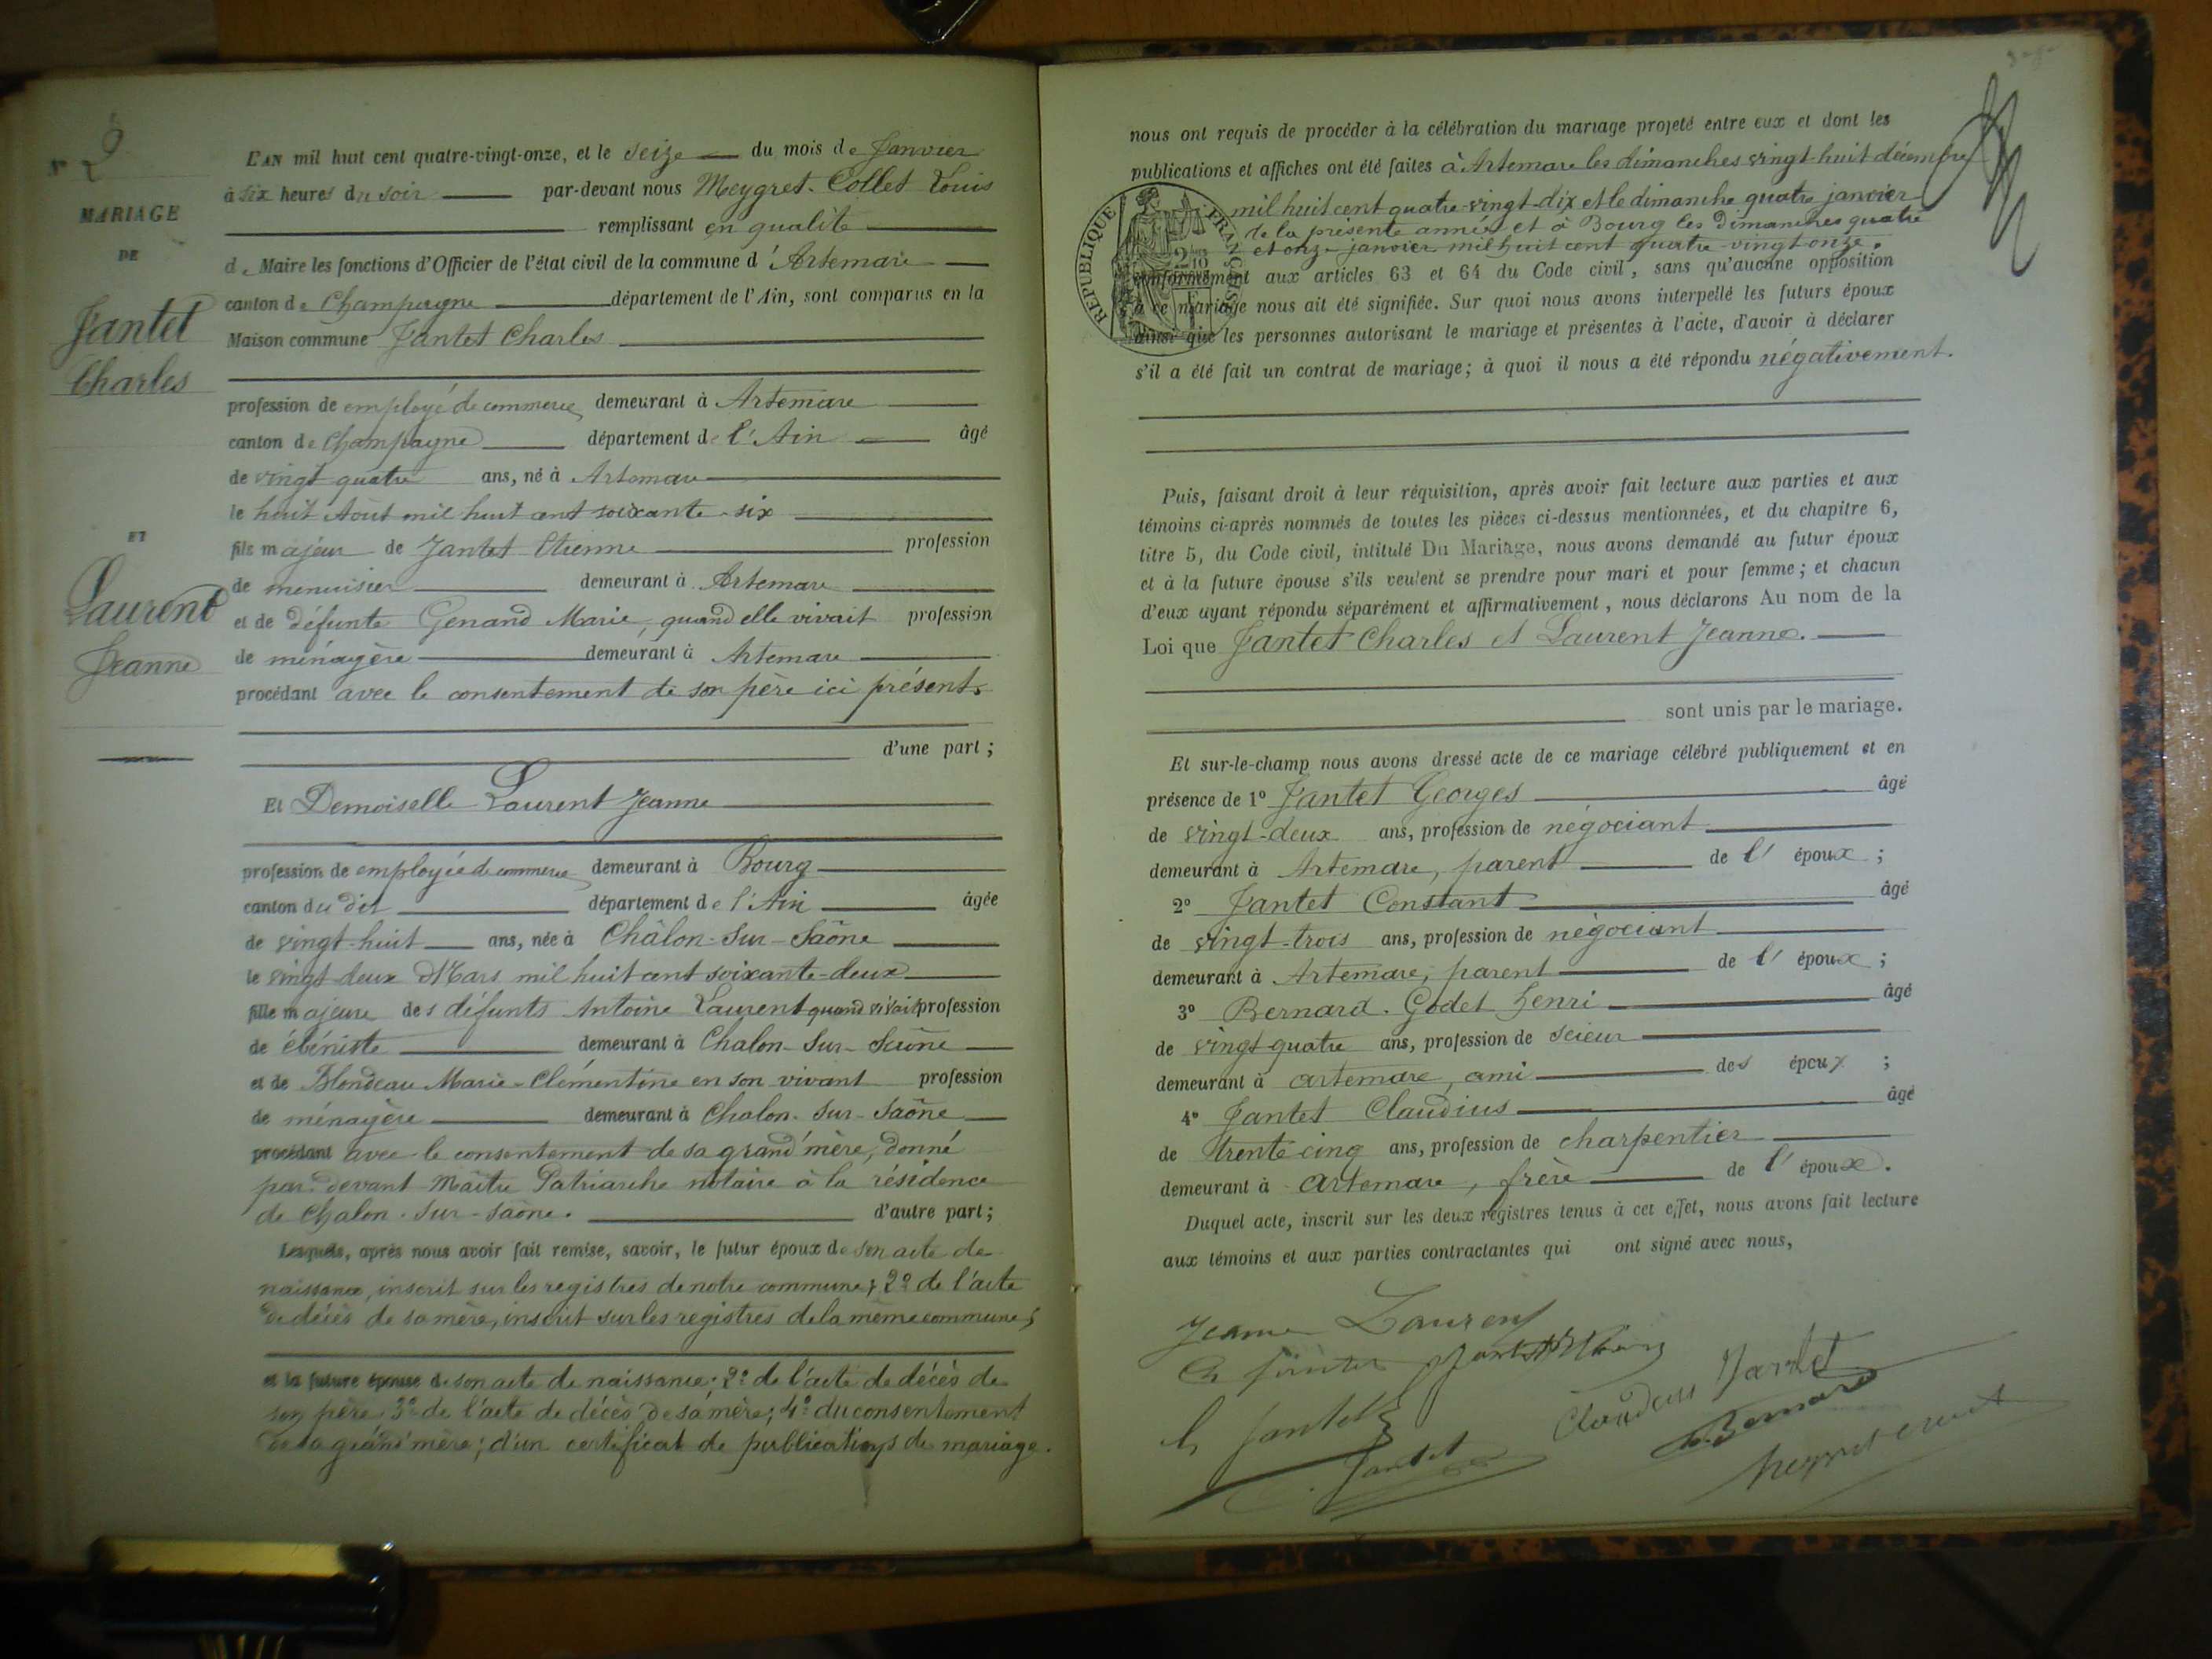 N° 2
MARIAGE
DE
Jantet
Charles
ET
Laurent
Jeanne
L'AN mil huit cent quatre-vingt-onze, et le seize du mois de Janvier
à six heures du soir par-devant nous Meygret-Collet Louis
remplissant en qualité
de Maire les fonctions d'Officier de l'état civil de la commune d'Artemare
canton de Champagne département de l'Ain, sont comparus en la
Maison commune Jantet Charles
profession de employé de commerce demeurant à Artemare
canton de Champagne département de l'Ain âgé
de vingt quatre ans, né à Artemare
le huit Août mil huit cent soixante-six
fils majeur de Jantet Etienne profession
de menuisier demeurant à Artemare
et de défunte Genand Marie, quand elle vivait profession
de ménagère demeurant à Artemare
procédant avec le consentement de son père ici présent.
d'une part ;
Et Demoiselle Laurent Jeanne
profession de employée de commerce demeurant à Bourg
canton du dit département de l'Ain âgée
de vingt-huit ans, née à Châlon-sur-Saône
le vingt-deux Mars mil huit cent soixante-deux
fille majeure des défunts Antoine Laurent quand vivait profession
de ébéniste demeurant à Chalon-sur-Saône
et de Blondeau Marie-Clémentine en son vivant profession
de ménagère demeurant à Chalon-sur-Saône
procédant avec le consentement de sa grand'mère, donné
par devant Maître Patriarche notaire à la résidence
de Chalon-sur-Saône. d'autre part ;
Lesquels, après nous avoir fait remise, savoir, le futur époux de son acte de
naissance, inscrit sur les registres de notre commune ; 2° de l'acte
de décès de sa mère, inscrit sur les registres de la même commune ;
et la future épouse de son acte de naissance ; 2° de l'acte de décès de
son père ; 3° de l'acte de décès de sa mère ; 4° du consentement
de sa grand'mère ; d'un certificat de publications de mariage.
nous ont requis de procéder à la célébration du mariage projeté entre eux et dont les
publications et affiches ont été faites à Artemare les dimanches vingt-huit décembre
mil huit cent quatre-vingt-dix et le dimanche quatre janvier
de la présente année et à Bourg les Dimanches quatre
et onze janvier mil huit cent quatre-vingt-onze.
REPUBLIQUE FRANÇAISE
conformément aux articles 63 et 64 du Code civil, sans qu'aucune opposition
à ce mariage nous ait été signifiée. Sur quoi nous avons interpellé les futurs époux
ainsi que les personnes autorisant le mariage et présentes à l'acte, d'avoir à déclarer
s'il a été fait un contrat de mariage ; à quoi il nous a été répondu négativement.
Puis, faisant droit à leur réquisition, après avoir fait lecture aux parties et aux
témoins ci-après nommés de toutes les pièces ci-dessus mentionnées, et du chapitre 6,
titre 5, du Code civil, intitulé Du Mariage, nous avons demandé au futur époux
et à la future épouse s'ils veulent se prendre pour mari et pour femme ; et chacun
d'eux ayant répondu séparément et affirmativement, nous déclarons Au nom de la
Loi que Jantet Charles et Laurent Jeanne.
sont unis par le mariage.
Et sur-le-champ nous avons dressé acte de ce mariage célébré publiquement et en
présence de 1° Jantet Georges âgé
de vingt-deux ans, profession de négociant
demeurant à Artemare, parent de l'époux ;
2° Jantet Constant âgé
de vingt-trois ans, profession de négociant
demeurant à Artemare, parent de l'époux ;
3° Bernard-Godet henri âgé
de vingt quatre ans, profession de scieur
demeurant à artemare, ami des époux ;
4° Jantet Claudius âgé
de trente cinq ans, profession de charpentier
demeurant à artemare, frère de l'époux.
Duquel acte, inscrit sur les deux registres tenus à cet effet, nous avons fait lecture
aux témoins et aux parties contractantes qui ont signé avec nous,
Jeanne Laurent
Claudius Jantet
Jantet
Bernard
Jantet